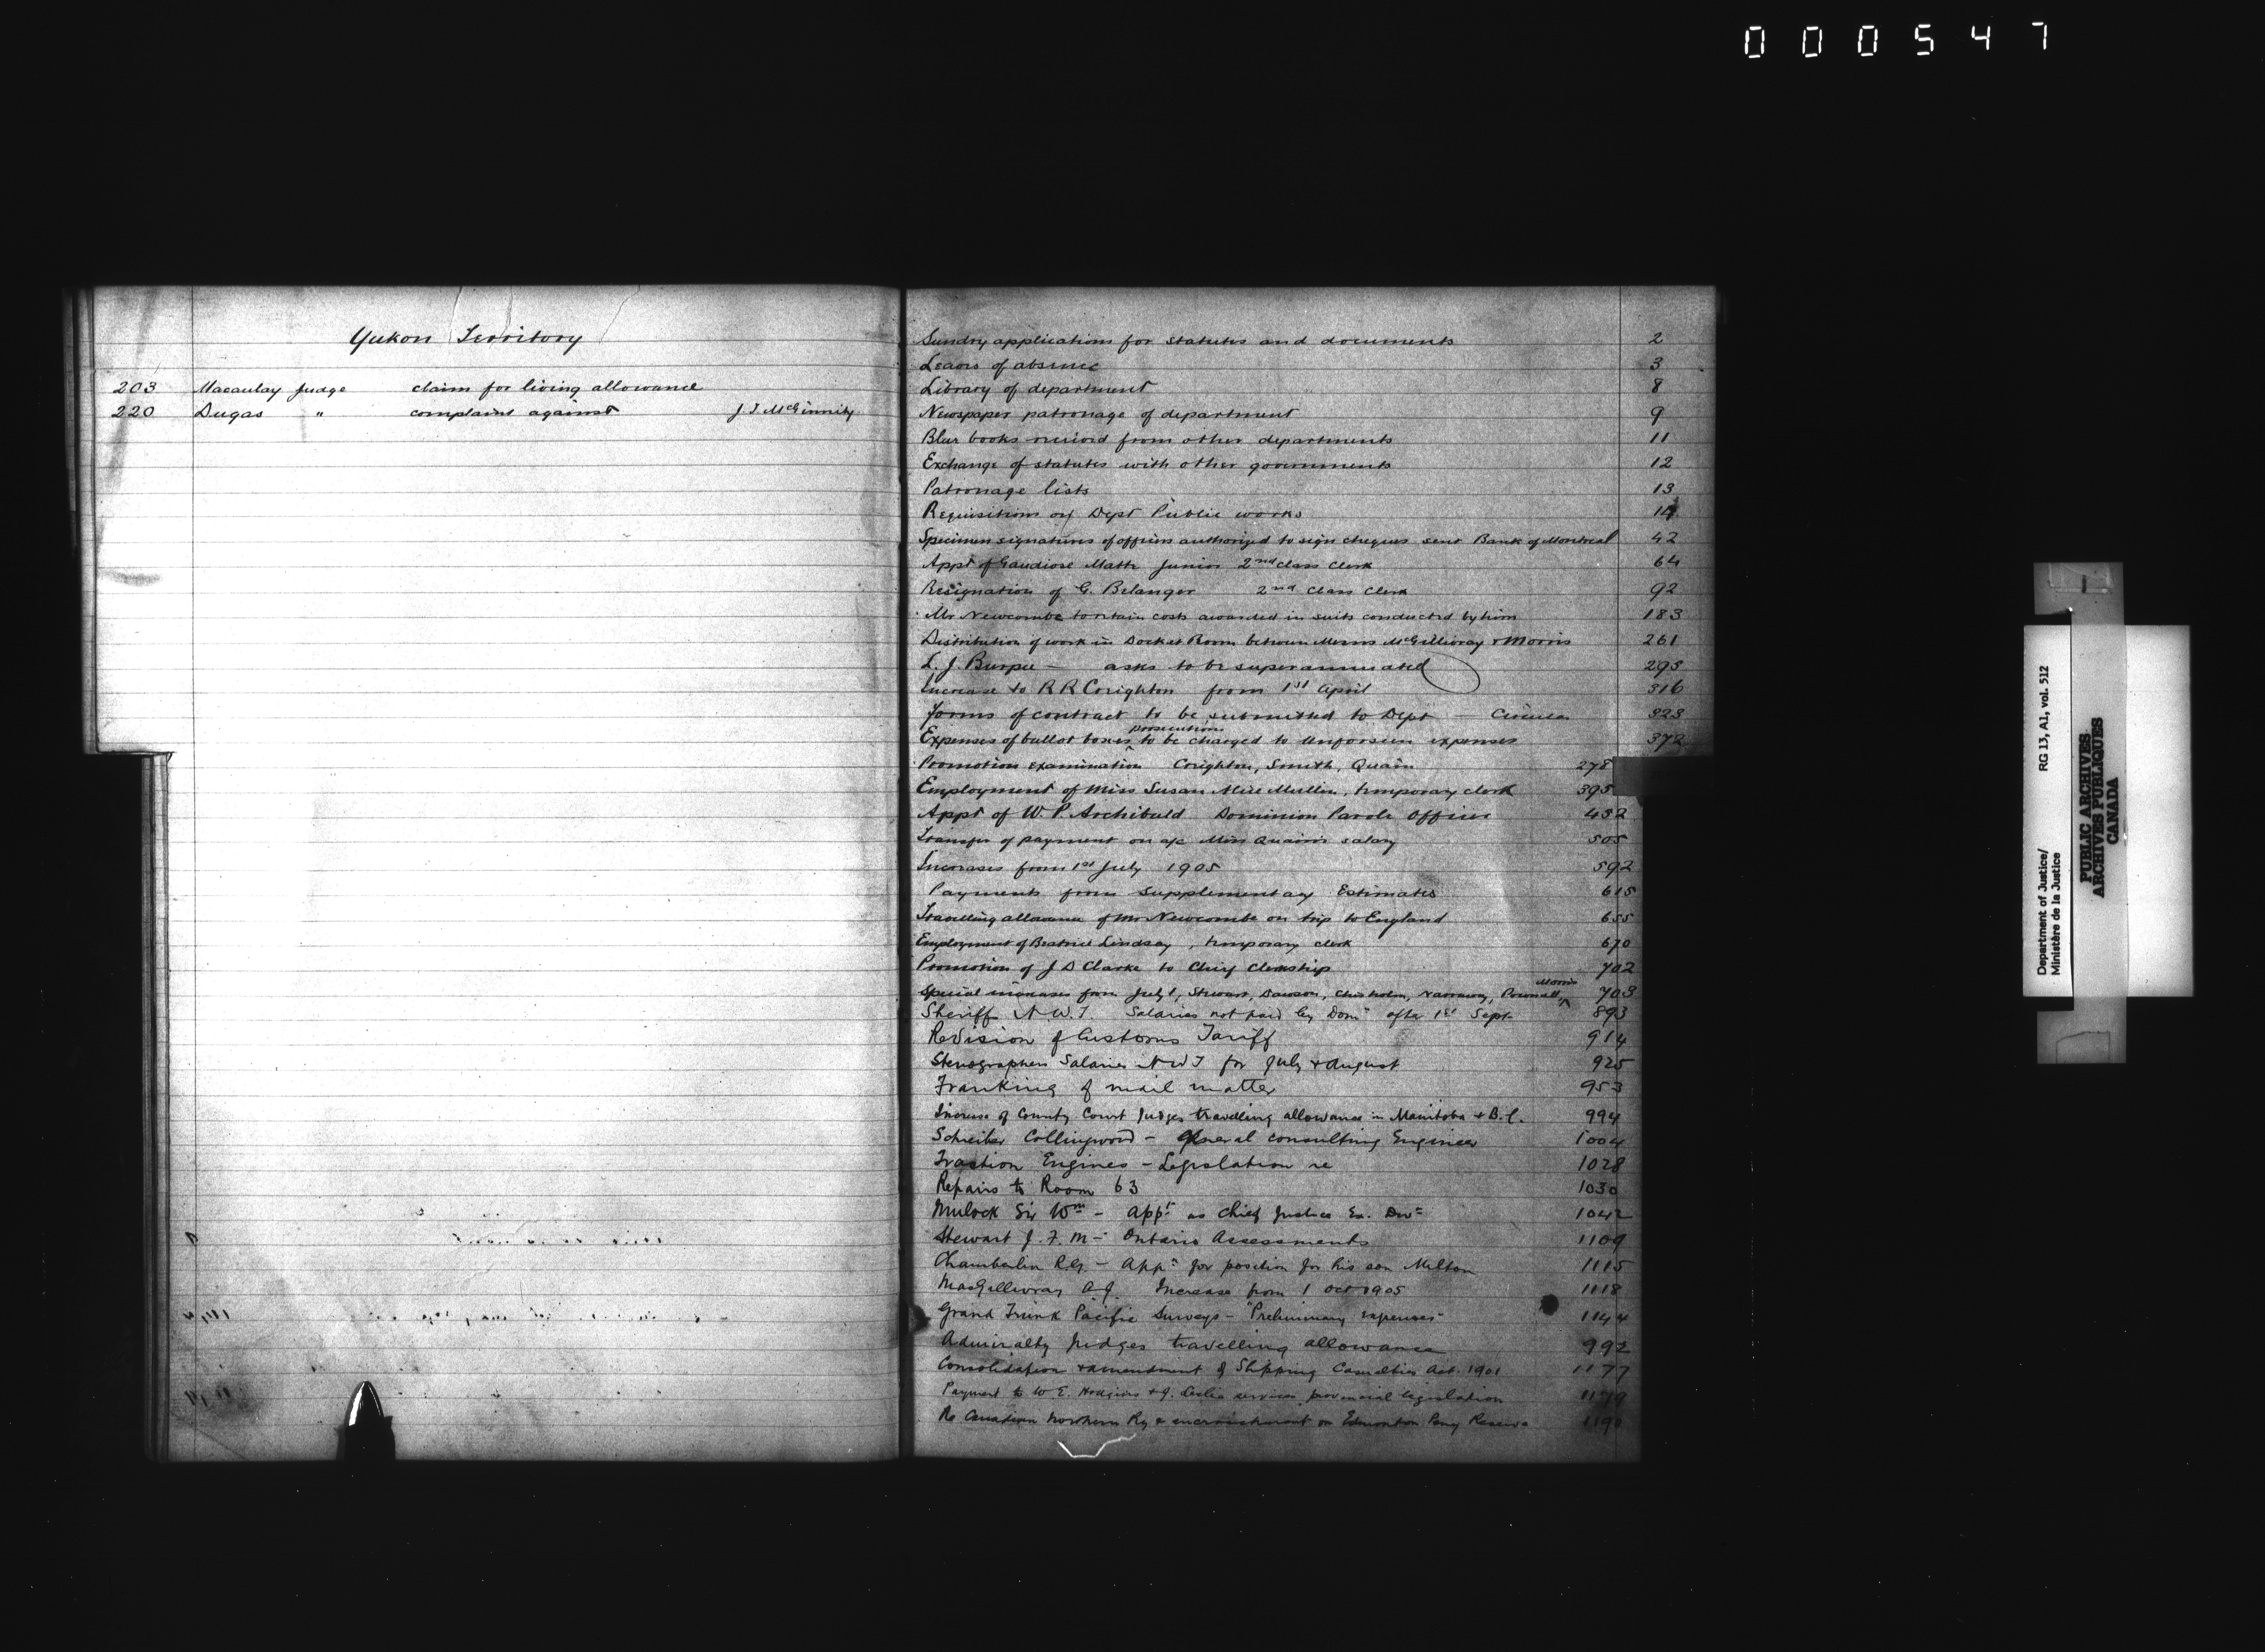 000547
Yukon Territory
203 Macaulay Judge claim for living allowance
220 Dugas " complaint against J. T. McGinnity
Sundry applications for statutes and documents 2
Leaves of absence 3
Library of department 8
Newspaper patronage of department 9
Blue books received from other departments 11
Exchange of statutes with other governments 12
Patronage lists 13
Requisitions on Dept Public works 14
Specimen signatures of officers authorized to sign cheques sent Bank of Montreal 42
Appt of Gaudiose Matte Junior 2nd class clerk 64
Resignation of G. Belanger 2nd class clerk 92
Mr Newcombe to retain costs awarded in suits conducted by him 183
Distribution of work in Docket Room between Messrs McGillivray & Morris 261
L. J. Burpee — asks to be superannuated 295
Increase to R R Creighton from 1st April 316
Forms of contract to be submitted to Dept — Circular 323
Expenses of ballot boxes prosecutions to be charged to unforseen expenses 372
Promotion examination Creighton, Smith, Quain 278
Employment of Miss Susan Mullin, temporary clerk 395
Appt of W. P. Archibald Dominion Parole Officer 432
Transfer of payment on a/c Miss Quain's salary 505
Increases from 1st July 1905 592
Payments from Supplementary Estimates 615
Travelling allowance of Mr Newcombe on trip to England 655
Employment of Beatrice Lindsay, temporary clerk 670
Promotion of J D Clarke to Chief Clerkship 702
Special increases from July 1, Stewart, Dawson, Chisholm, Narraway, Pownall, Morris 703
Sheriff N.W.T. Salaries not paid by Domn after 1st Sept. 893
Revision of Customs Tariff 914
Stenographers Salaries N W T for July & August 925
Franking of mail matter 953
Increase of County Court Judges travelling allowance in Manitoba & B.C. 994
Schreiber Collingwood - general consulting Engineer 1004
Traction Engines - Legislation re 1028
Repairs to Room 63 1030
Mulock Sir Wm - appt as Chief Justice Ex. Divn 1042
Stewart J. F. M - Ontario Assessments 1109
Chamberlin R.G. - Appn for position for his son Milton 1115
MacGillivray A.J. Increase from 1 Oct 1905 1118
Grand Trunk Pacific Surveys - "Preliminary expenses" 1144
Admiralty Judges travelling allowance 992
Consolidation & amendment of Shipping Casualties Act. 1901 1177
Payment to W E. Hodgins & J. Leslie services provincial legislation 1179
Re Canadian Northern Ry & encroachment on Edmonton Peny Reserve 1190
Department of Justice/
Ministère de la Justice
RG 13, A1, vol. 512
PUBLIC ARCHIVES
ARCHIVES PUBLIQUES
CANADA